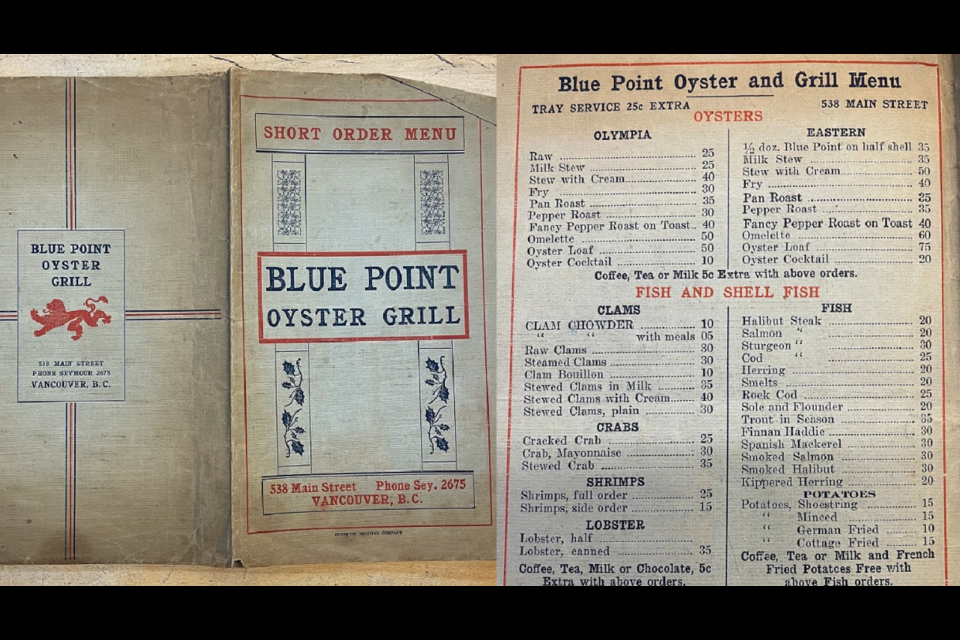 BLUE POINT
OYSTER
GRILL
538 MAIN STREET
PHONE SEYMOUR 2675
VANCOUVER, B.C.
SHORT ORDER MENU
BLUE POINT
OYSTER GRILL
538 Main Street Phone Sey. 2675
VANCOUVER, B.C.
PRINTING COMPANY
Blue Point Oyster and Grill Menu
TRAY SERVICE 25c EXTRA 538 MAIN STREET
OYSTERS
OLYMPIA
Raw 25
Milk Stew 25
Stew with Cream 40
Fry 30
Pan Roast 35
Pepper Roast 30
Fancy Pepper Roast on Toast 40
Omelette 50
Oyster Loaf 50
Oyster Cocktail 10
EASTERN
½ doz. Blue Point on half shell 35
Milk Stew 35
Stew with Cream 50
Fry 40
Pan Roast 25
Pepper Roast 35
Fancy Pepper Roast on Toast 40
Omelette 60
Oyster Loaf 75
Oyster Cocktail 20
Coffee, Tea or Milk 5c Extra with above orders.
FISH AND SHELL FISH
CLAMS
CLAM CHOWDER 10
" " with meals 05
Raw Clams 30
Steamed Clams 30
Clam Bouillon 10
Stewed Clams in Milk 35
Stewed Clams with Cream 40
Stewed Clams, plain 30
CRABS
Cracked Crab 25
Crab, Mayonnaise 30
Stewed Crab 35
SHRIMPS
Shrimps, full order 25
Shrimps, side order 15
LOBSTER
Lobster, half
Lobster, canned 35
Coffee, Tea, Milk or Chocolate, 5c
Extra with above orders.
FISH
Halibut Steak 20
Salmon " 20
Sturgeon " 30
Cod " 25
Herring 20
Smelts 20
Rock Cod 25
Sole and Flounder 20
Trout in Season 35
Finnan Haddie 30
Spanish Mackerel 30
Smoked Salmon 30
Smoked Halibut 30
Kippered Herring 20
POTATOES
Potatoes, Shoestring 15
" Minced 15
" German Fried 10
" Cottage Fried 15
Coffee, Tea or Milk and French
Fried Potatoes Free with
above Fish orders.